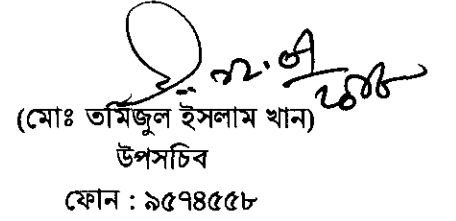 (মোঃ তমিজুল ইসলাম খান)
উপসচিব
ফোন : ৯৫৭৪৫৫৮